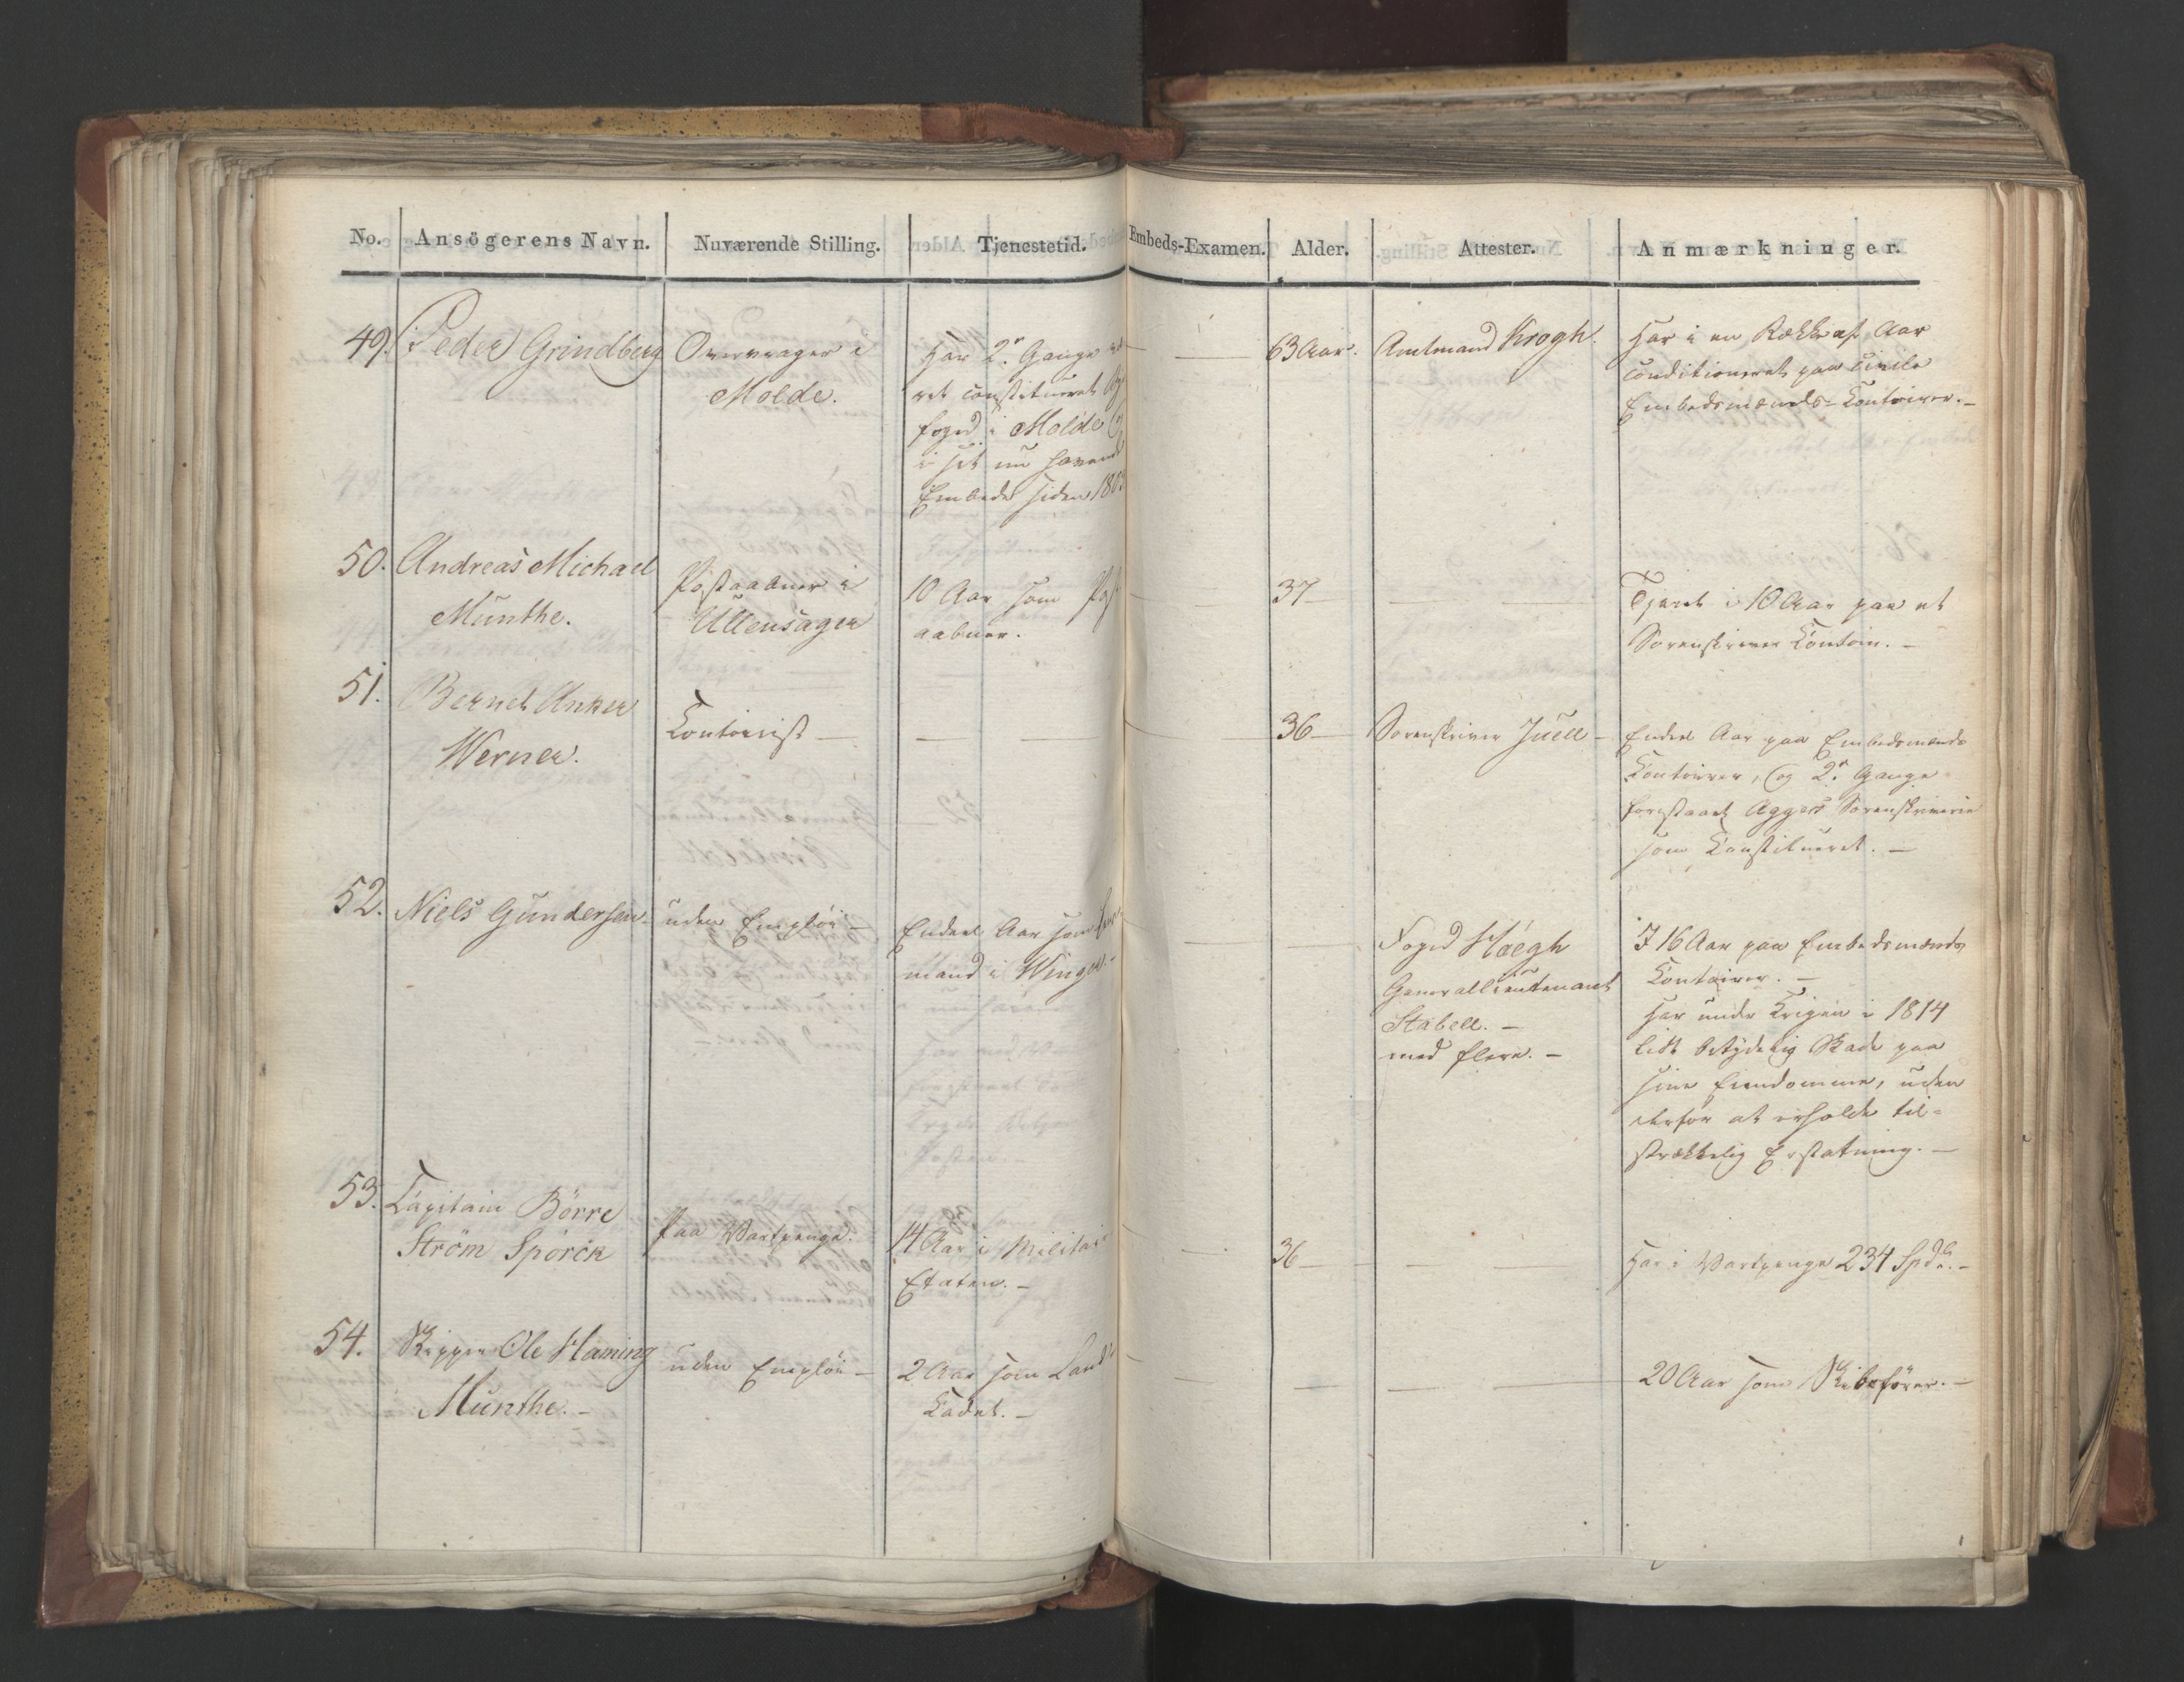 No. Ansögerens Navn. Nuværende Stilling. Tjenestetid. Embeds-Examen. Alder. Attester. Anmærkninger.
49. Peder Grindberg
Overvrager i
Molde.
Har 2de Gange
ret constitueret
foged i Molde
i sit nu havende
Embede siden
— —
63 Aar.
Amtmand Krogh.
Har i en Række af Aar
conditioneret paa Civile
Embedsmænds-Contoirer. —
50. Andreas Michael
Munthe.
Postaabner i
Ullensager
10 Aar som Post
aabner.
— —
37 —
— —
Tjent i 10 Aar paa et
Sorenskriver Contoir. —
51. Bernt Anker
Werner.
Contoirist —
— —
— —
36 —
Sorenskriver Juell —
Endeel Aar paa Embedsmænds
Contoirer, og 2de Gange
forestaaet Aggers Sorenskriverie
som Constitueret. —
52. Niels Gundersen.
uden Emploi —
Endeel Aar som
mand i Winger. —
— —
Foged Höegh
Generallieutenant
Stabell. —
med flere. —
I 16 Aar paa Embedsmænds
Contoirer. —
Har under Krigen i 1814
lidt betydelig Skade paa
sine Eiendomme, uden
derfor at erholde til-
strækkelig Erstatning. —
53. Capitain Börre
Ström Spörck
Paa Vartpenge.
14 Aar i Militair
Etaten. —
— —
36 —
— —
Har i Vartpenge 234 Spd. —
54. Skipper Ole Haming
Munthe. —
uden Emploi —
2 Aar som Land
Cadet. —
— —
—
— —
20 Aar som Skibsförer. —